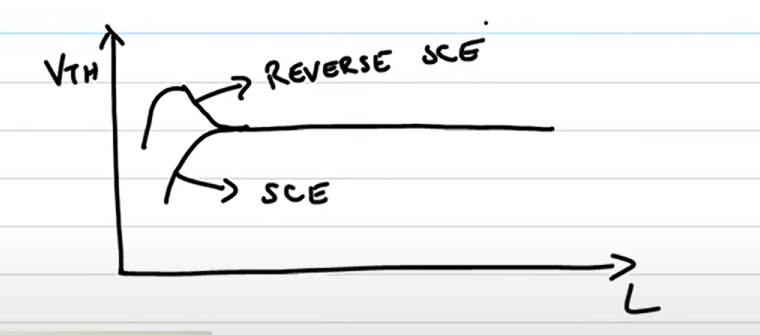 VTH
REVERSE SCE
SCE
L